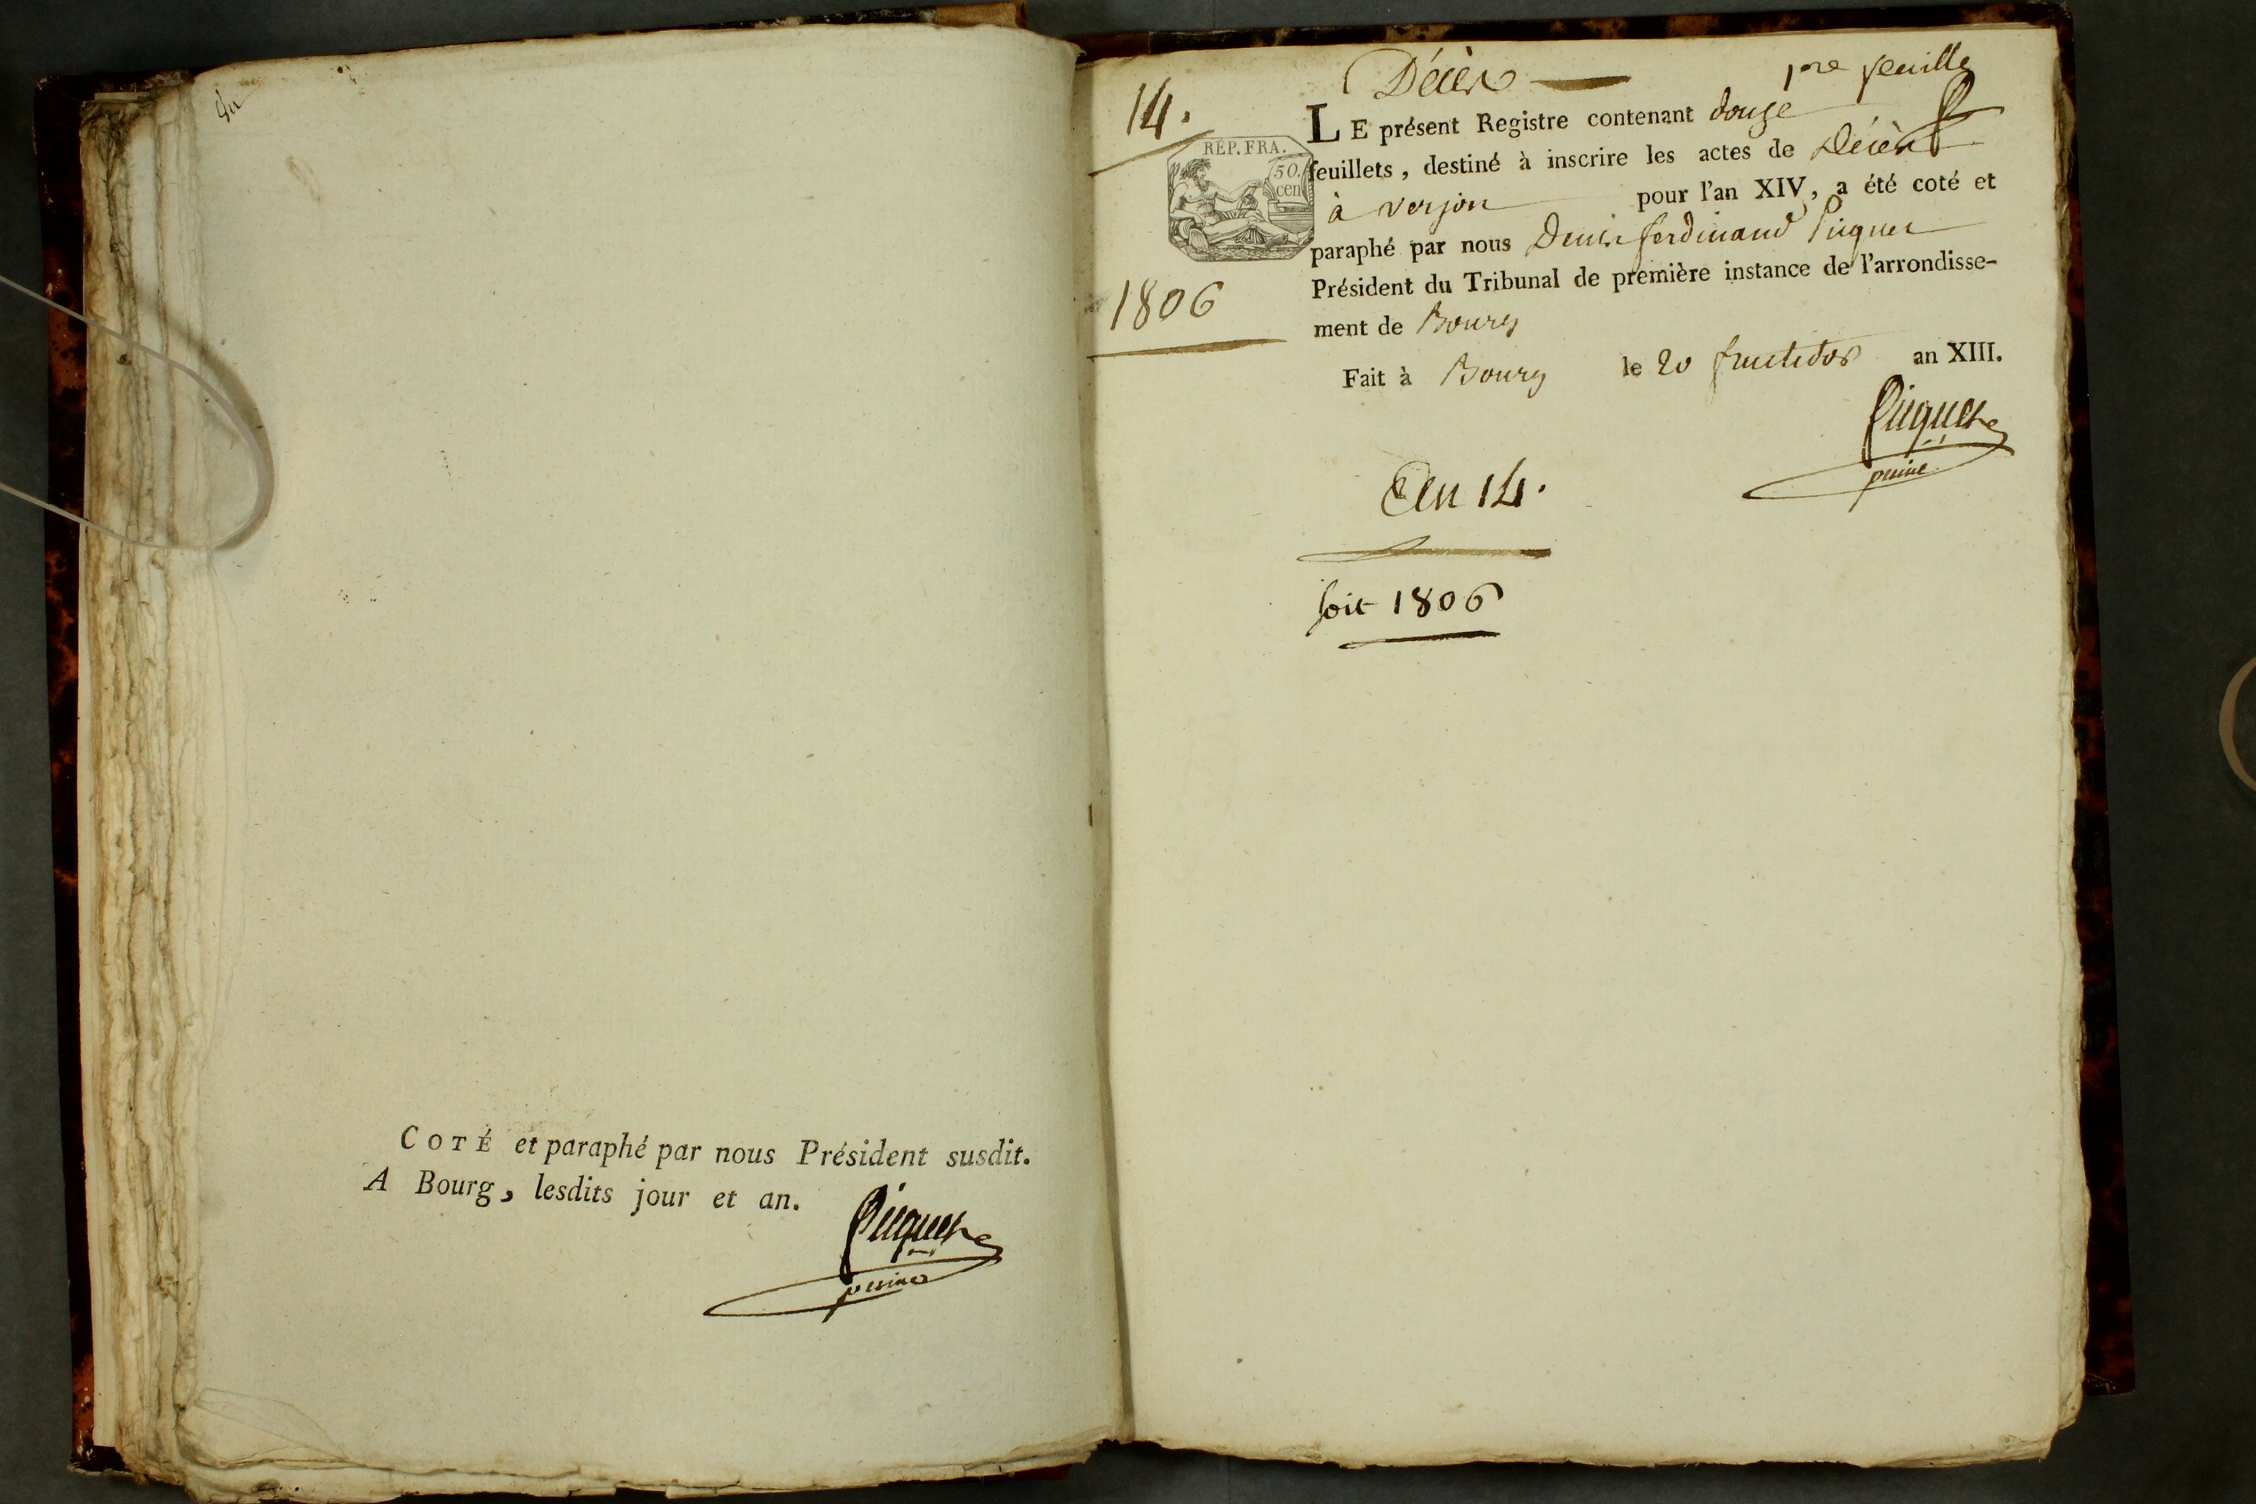 COTÉ et paraphé par nous Président susdit.
A Bourg, lesdits jour et an.
Picquet
puiné
Décès
1re feuille
14.
RÉP. FRA.
50.
cen
1806
LE présent Registre contenant douze
feuillets, destiné à inscrire les actes de Décès
à verjon pour l'an XIV, a été coté et
paraphé par nous Denis ferdinand Picquet
Président du Tribunal de première instance de l'arrondisse-
ment de Bourg
Fait à Bourg le 20 fructidor an XIII.
Picquet
puiné
An 14.
soit 1806